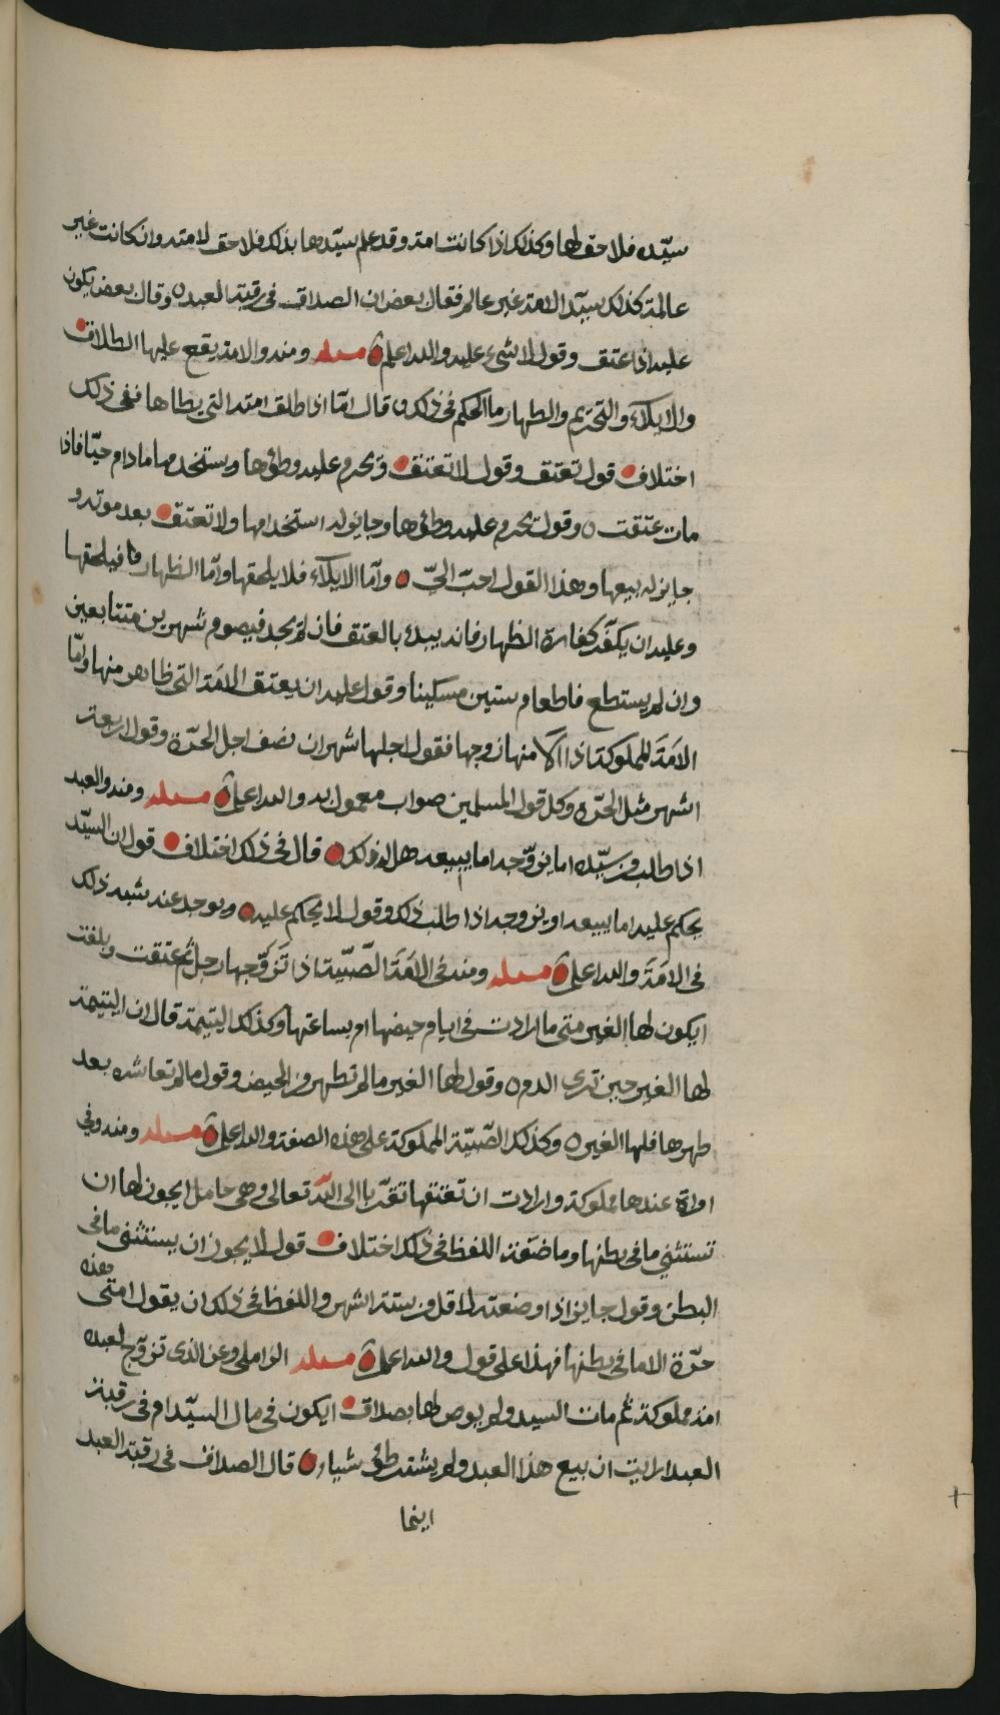 سيّده فلا حق لها وكذلك اذا كانت امة وقد علم سيّدها بذلك فلا حق لامته وان كانت غير
عالمة كذلك سيّد الامة غير عالم فقال بعض ان الصداق في رقبة العبد ٥ وقال بعض يكون
عليه اذا عتق وقول لا شيء عليه والله اعلم مسئلة ومنه والامة يقع عليها الطلاق
والايلاء والتحريم والظهار ما الحكم في ذلك ٥ قال امّا اذا طلق امته التي يطاها ففي ذلك
اختلاف قول تعتق وقول لا تعتق ويحرم عليه وطؤها ويستخدمها مادام حيّا فاذا
مات عتقت ٥ وقول يحرم عليه وطؤها وجايز له استخدامها ولا تعتق بعد موته و
جايز له بيعها وهذا القول احبّ اليّ ٥ وامّا الايلاء فلا يلحقها وامّا الظهار فيلحقها
وعليه ان يكفّر كفارة الظهار فانه يبدء بالعتق فان لم يجد فيصوم شهرين متتابعين
وان لم يستطع فاطعام ستين مسكينا وقول عليه ان يعتق الامة التي ظاهر منها وامّا
الامَة المملوكة اذا الا منها زوجها فقول اجلها شهران نصف اجل الحرّة وقول اربعة
اشهر مثل الحرّة وكل قول المسلمين صواب معمول به والله اعلم مسئلة ومنه والعبد
اذا طلب من سيّده اما يزوّجه اما يبيعه هل له ذلك ٥ قال في ذلك اختلاف قول ان السيّد
يحكم عليه اما يبيعه او يزوجه اذا طلب ذلك وقول لا يحكم عليه ٥ ويوجد عنه شبه ذلك
في الامَة والله اعلم مسئلة ومنه في الامَة الصّبيّة اذا تَزَوّجها رجل ثم عتقت وبلغت
ايكون لها الغير متى ما ارادت في ايام حيضها ام بساعتها وكذلك اليتيمة قال ان اليتيمة
لها الغير حين ترى الدم ٥ وقول لها الغير ما لم تطهر من الحيض وقول ما لم تعاشره بعد
طهرها فلها الغير ٥ وكذلك الصّبيّة المملوكة على هذه الصفة والله اعلم مسئلة ومنه وفي
امراة عندها مملوكة وارادت ان تعتقها تقرّبا الى الله تعالى وهي حامل ايجوز لها ان
تستثني ما في بطنها وما صفة اللفظ في ذلك اختلاف قول لا يجوز ان يستثنى ما في
البطن وقول جايز اذا وضعته لاقل من ستة اشهر واللفظ في ذلك ان يقول امتي هذه
حرّة الا ما في بطنها فهذا على قول والله اعلم مسئلة الزاملي وعن الذي تزوّج لعبده
امة مملوكة ثم مات السيد ولم يوص لها بصداق ايكون في مال السيّد ام في رقبة
العبد ارايت ان بيع هذا العبد ولم يشترط شياء ٥ قال الصداق في رقبة العبد
اينما